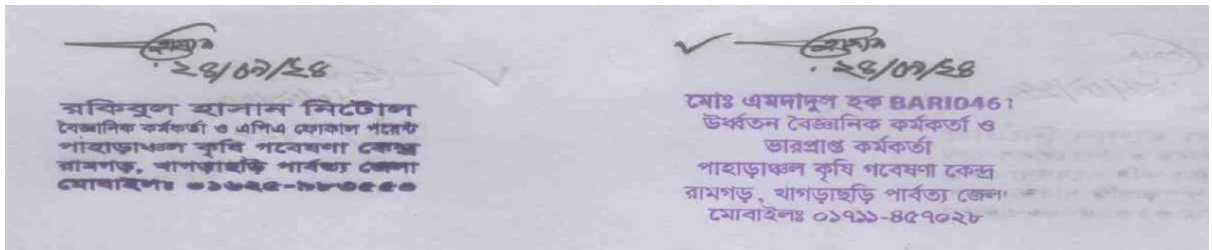 ২৪/০৯/২৪
রকিবুল হাসান নিটোল
বৈজ্ঞানিক কর্মকর্তা ও এপিএ ফোকাল পয়েন্ট
পাহাড়াঞ্চল কৃষি গবেষণা কেন্দ্র
রামগড়, খাগড়াছড়ি পার্বত্য জেলা
মোবাইলঃ
২৪/০৯/২৪
মোঃ এমদাদুল হক BARI0461
উর্ধ্বতন বৈজ্ঞানিক কর্মকর্তা ও
ভারপ্রাপ্ত কর্মকর্তা
পাহাড়াঞ্চল কৃষি গবেষণা কেন্দ্র
রামগড়, খাগড়াছড়ি পার্বত্য জেলা
মোবাইলঃ ০১৭১১-৪৫৭০২৮